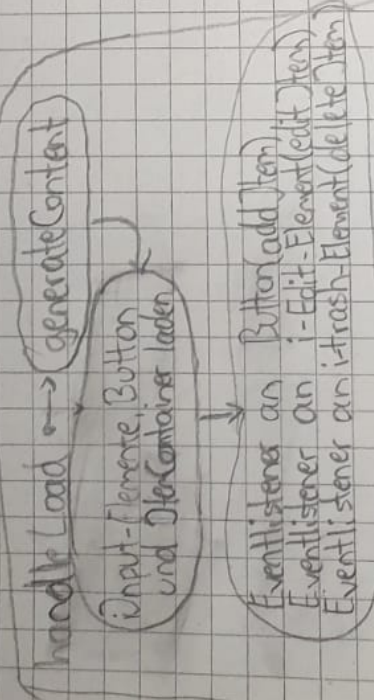 handleLoad → generateContent
Input-Elemente, Button
und ItemContainer laden
Eventlistener an Button(addItem)
Eventlistener an i-Edit-Element(editItem)
Eventlistener an i-trash-Element(deleteItem)